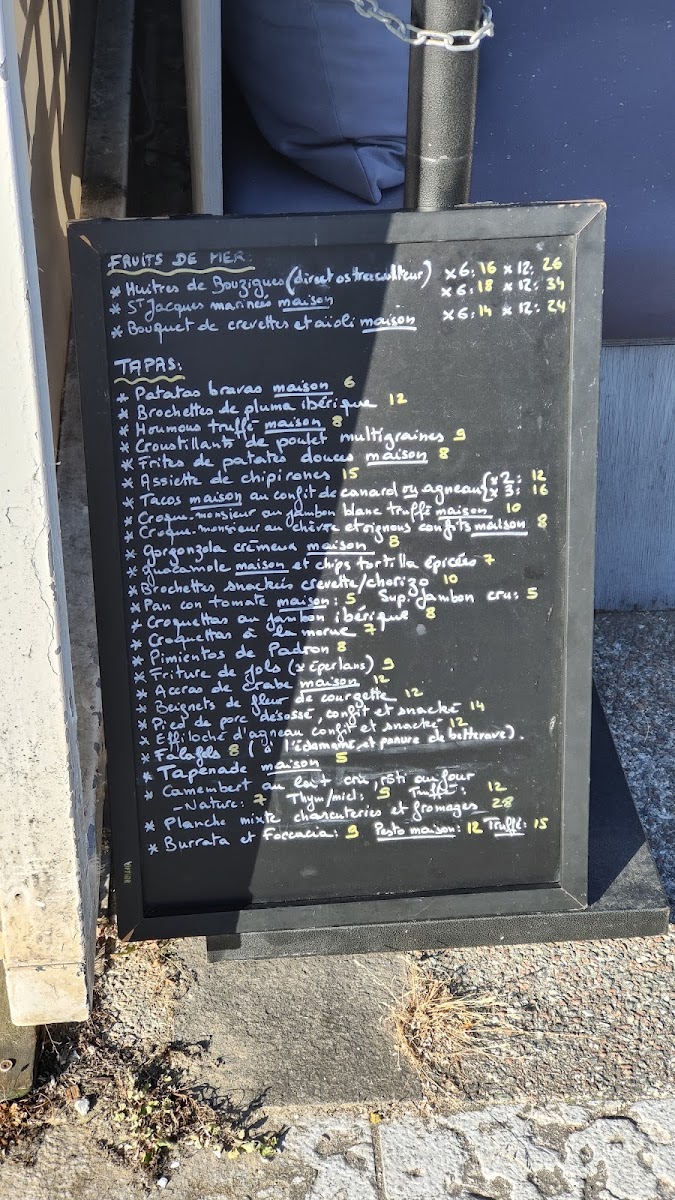 FRUITS DE MER:
* Huitres de Bouzigues (direct ostreiculteur) x6: 16 x12: 26
* ST Jacques marinées maison x6: 18 x12: 34
* Bouquet de crevettes et aïoli maison x6: 14 x12: 24
TAPAS:
* Patatas bravas maison 6
* Brochettes de pluma ibérique 12
* Houmous truffé maison 8
* Croustillants de poulet multigraines 9
* Frites de patates douces maison 8
* Assiette de chipirones 15
* Tacos maison au confit de canard ou agneau { x2: 12
x3: 16
* Croque-monsieur au jambon blanc truffé maison 10
* Croque-monsieur au chèvre et oignons confits maison 8
* Gorgonzola crémeux maison 8
* Guacamole maison et chips tortilla épicées 7
* Brochettes snackées crevette/chorizo 10
* Pan con tomate maison: 5 Sup. jambon cru: 5
* Croquettas au jambon ibérique 8
* Croquettas à la morue 7
* Pimientos de Padron 8
* Friture de jols (x éperlans) 9
* Accras de crabe maison 12
* Beignets de fleur de courgette 12
* Pied de porc désossé, confit et snacké 14
* Effiloché d'agneau confit et snacké 12
* Falafels 8 (à l'édamame et panure de betterave).
* Tapenade maison 5
* Camembert au lait cru, rôti au four
-Nature: 7 Thym/miel: 9 Truffé: 12
* Planche mixte charcuteries et fromages 28
* Burrata et Foccacia: 9 Pesto maison: 12 Truffé: 15